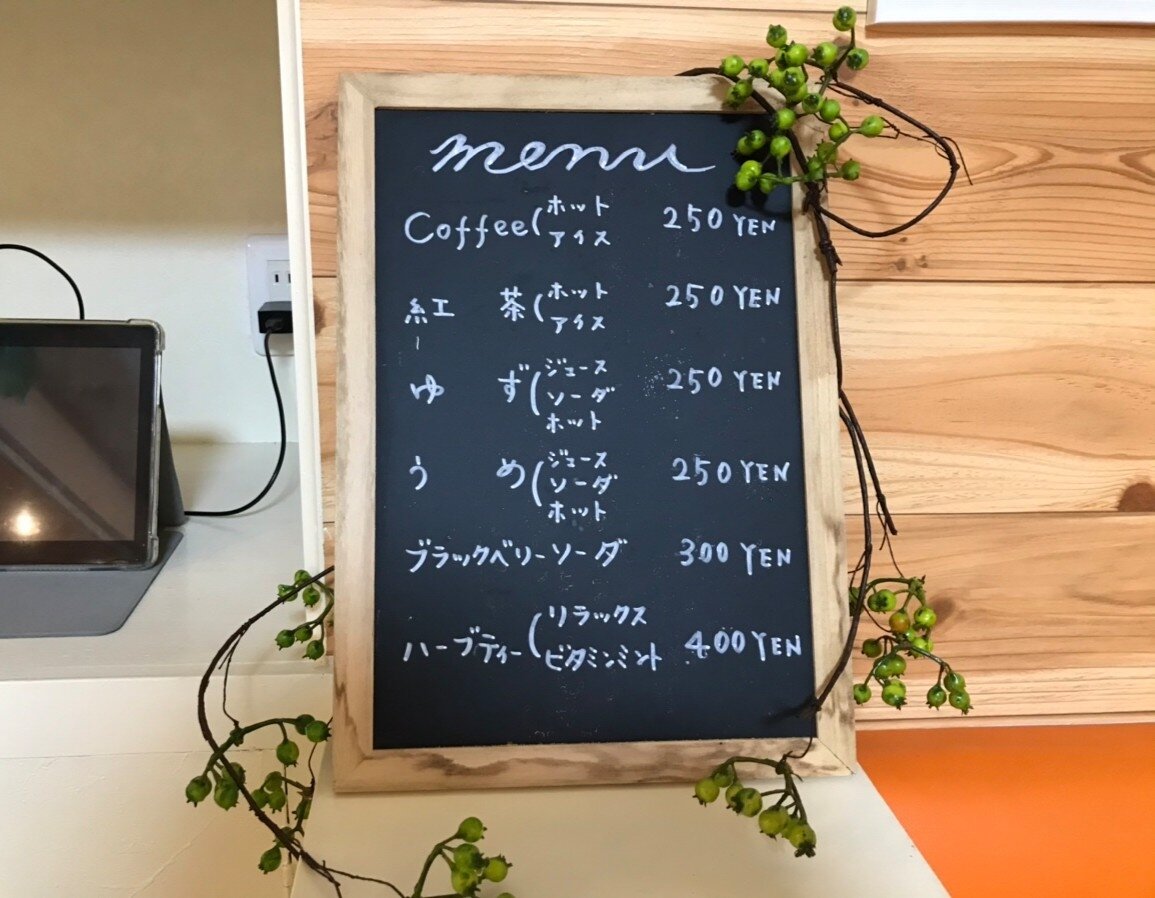 menu
Coffee(ホット 250 YEN
アイス
紅 茶(ホット 250 YEN
アイス
ゆ ず(ジュース 250 YEN
ソーダ
ホット
う め(ジュース 250 YEN
ソーダ
ホット
ブラックベリーソーダ 300 YEN
ハーブティー(リラックス 400 YEN
ビタミンミント